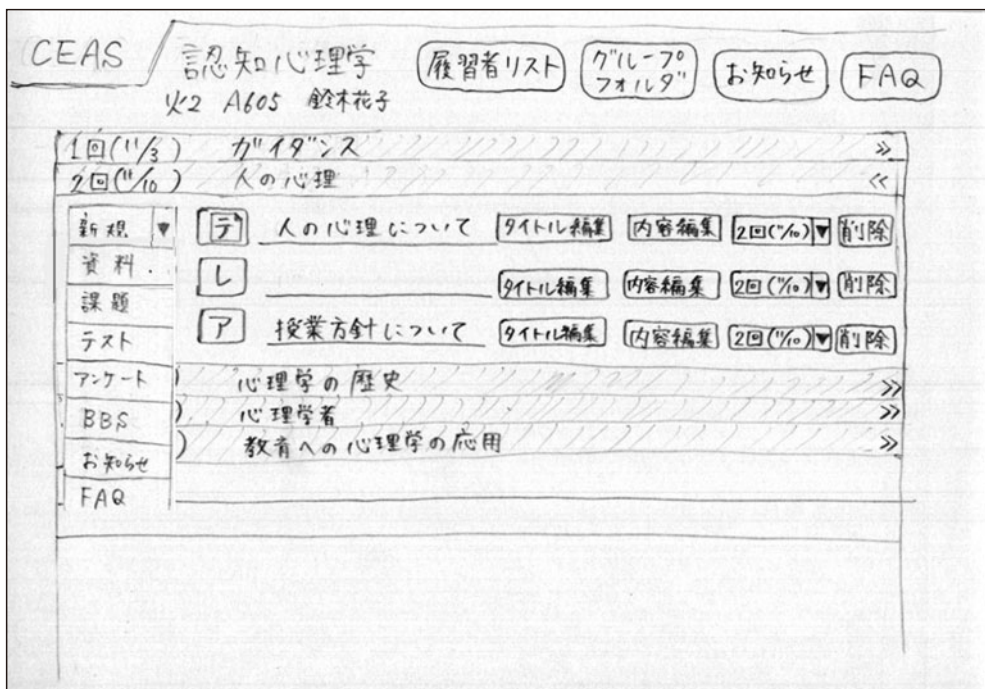 CEAS
認知心理学
火2 A605 鈴木花子
履習者リスト
グループ
フォルダ
お知らせ
FAQ
1回(11/3) ガイダンス »
2回(11/10) 人の心理 «
新規 ▼
資料
課題
テスト
アンケート
BBS
お知らせ
FAQ
テ 人の心理について タイトル編集 内容編集 2回(11/10)▼ 削除
レ タイトル編集 内容編集 2回(11/10)▼ 削除
ア 授業方針について タイトル編集 内容編集 2回(11/10)▼ 削除
) 心理学の歴史 »
) 心理学者 »
) 教育への心理学の応用 »